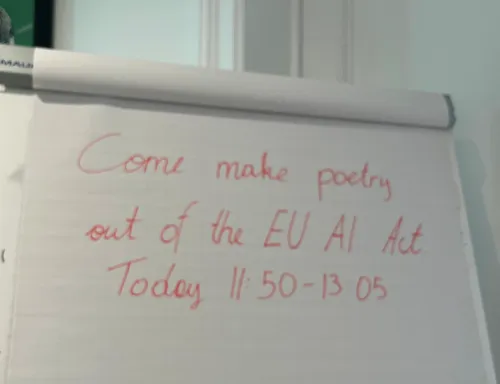 Come make poetry
out of the EU AI Act
Today 11:50-13 05